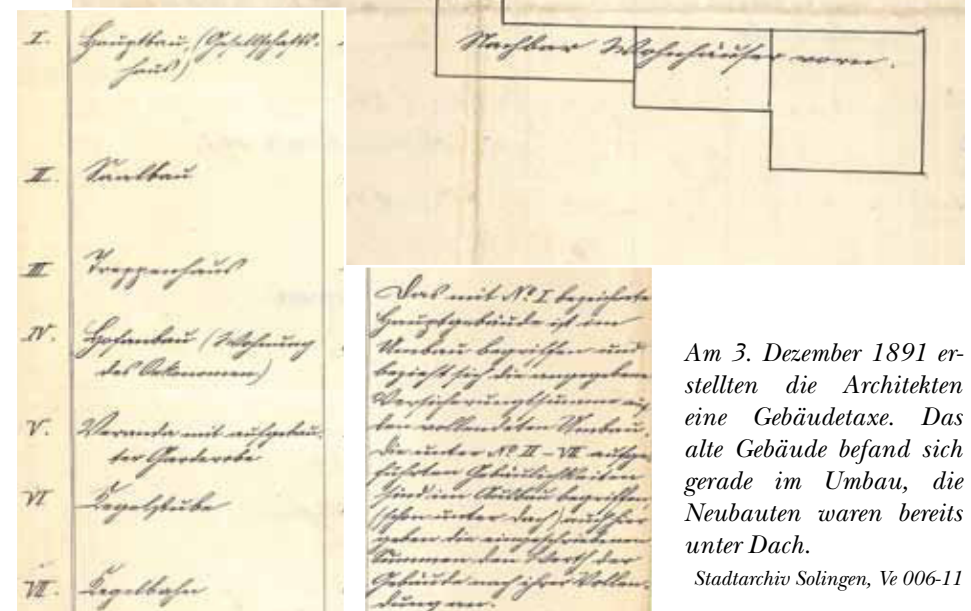 I. Hauptbau, (Gesellschafts-
haus)
II. Saalbau
III Treppenhaus
IV. Hofanbau (Wohnung
des Oekonomen)
V. Veranda mit aufgebau-
ter Garderobe
VI Kegelstube
VII. Kegelbahn
Nachbar Wohnhäuser vorn.
Das mit No. I bezeichnete
Hauptgebäude ist im
Umbau begriffen und
bezieht sich die angegebene
Versicherungssumme auf
den vollendeten Umbau.
Die unter No II - VII aufge-
führten Gebäulichkeiten
sind im Ausbau begriffen
(schon unter Dach) auch hier
geben die eingeschriebenen
Summen den Werth der
Gebäude nach ihrer Vollen-
dung an.
Am 3. Dezember 1891 er-
stellten die Architekten
eine Gebäudetaxe. Das
alte Gebäude befand sich
gerade im Umbau, die
Neubauten waren bereits
unter Dach.
Stadtarchiv Solingen, Ve 006-11